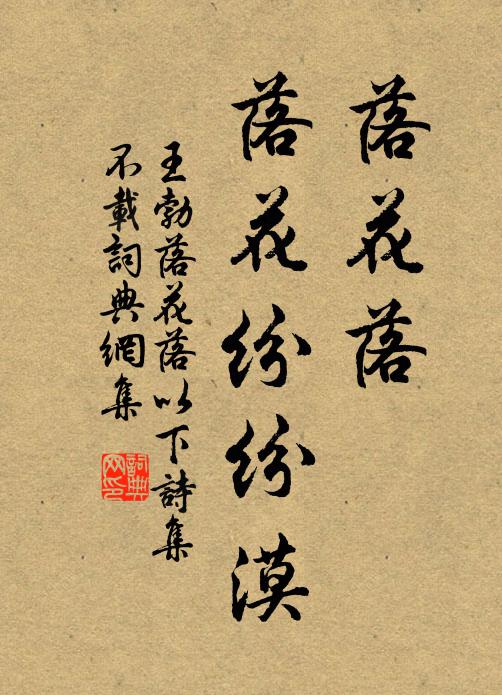 落花落
落花紛紛漠
王勃落花落以下詩集
不載詞典網集
詞典
网印